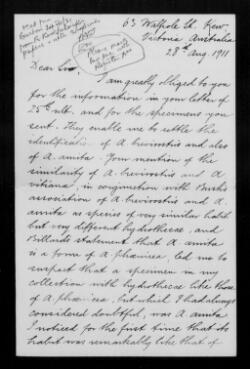 63 Walpole St. Kew,
Victoria Australia
28th Aug. 1911
Dear Sir,
I am greatly obliged to you
for the information in your letter of
25th ult. and for the specimens you
sent. They enable me to settle the
identification of A. brevirostris and also
of A. armata. Your mention of the
similarity of A. brevirostris and A.
vitiana, in conjunction with Busk's
association of A. brevirostris and A.
armata as species of very similar habit
but very different hydrothecae, and
Billard's statement that A. armata
is a form of A. phoenicea, led me to
suspect that a specimen in my
collection with hydrothecae like those
of A. phoenicea, but which I had always
considered doubtful, was A. armata
I noticed for the first time that its
habit was remarkably like that of